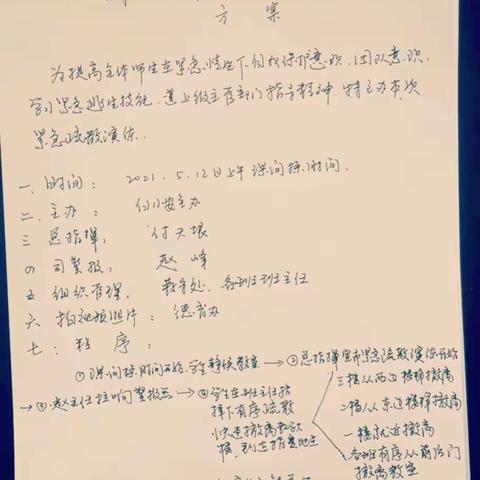 方 案
为提高全体师生在紧急情况下自我保护意识、团队意识、
学习紧急逃生技能，遵上级主管部门指导精神，特主办本次
紧急疏散演练.
一、时间： 2021.5.12日上午课间操时间.
二、主办： 保安主办
三 总指挥： 付天银
四 司警报： 赵峰
五 组织管理： 教导处、各班班主任
六 拍视频照片： 德育办
七： 程序：
①课间操时间开始,学生静候教室 → ②总指挥宣布紧急疏散演练开始
→ ③.赵主任拉响警报 → ④学生在班主任指
挥下有序疏散
快速撤离教学
楼,到达指定地点
三楼从西边楼梯撤离
二楼从东边楼梯撤离
一楼就近撤离
各班有序从前后门
撤离教室